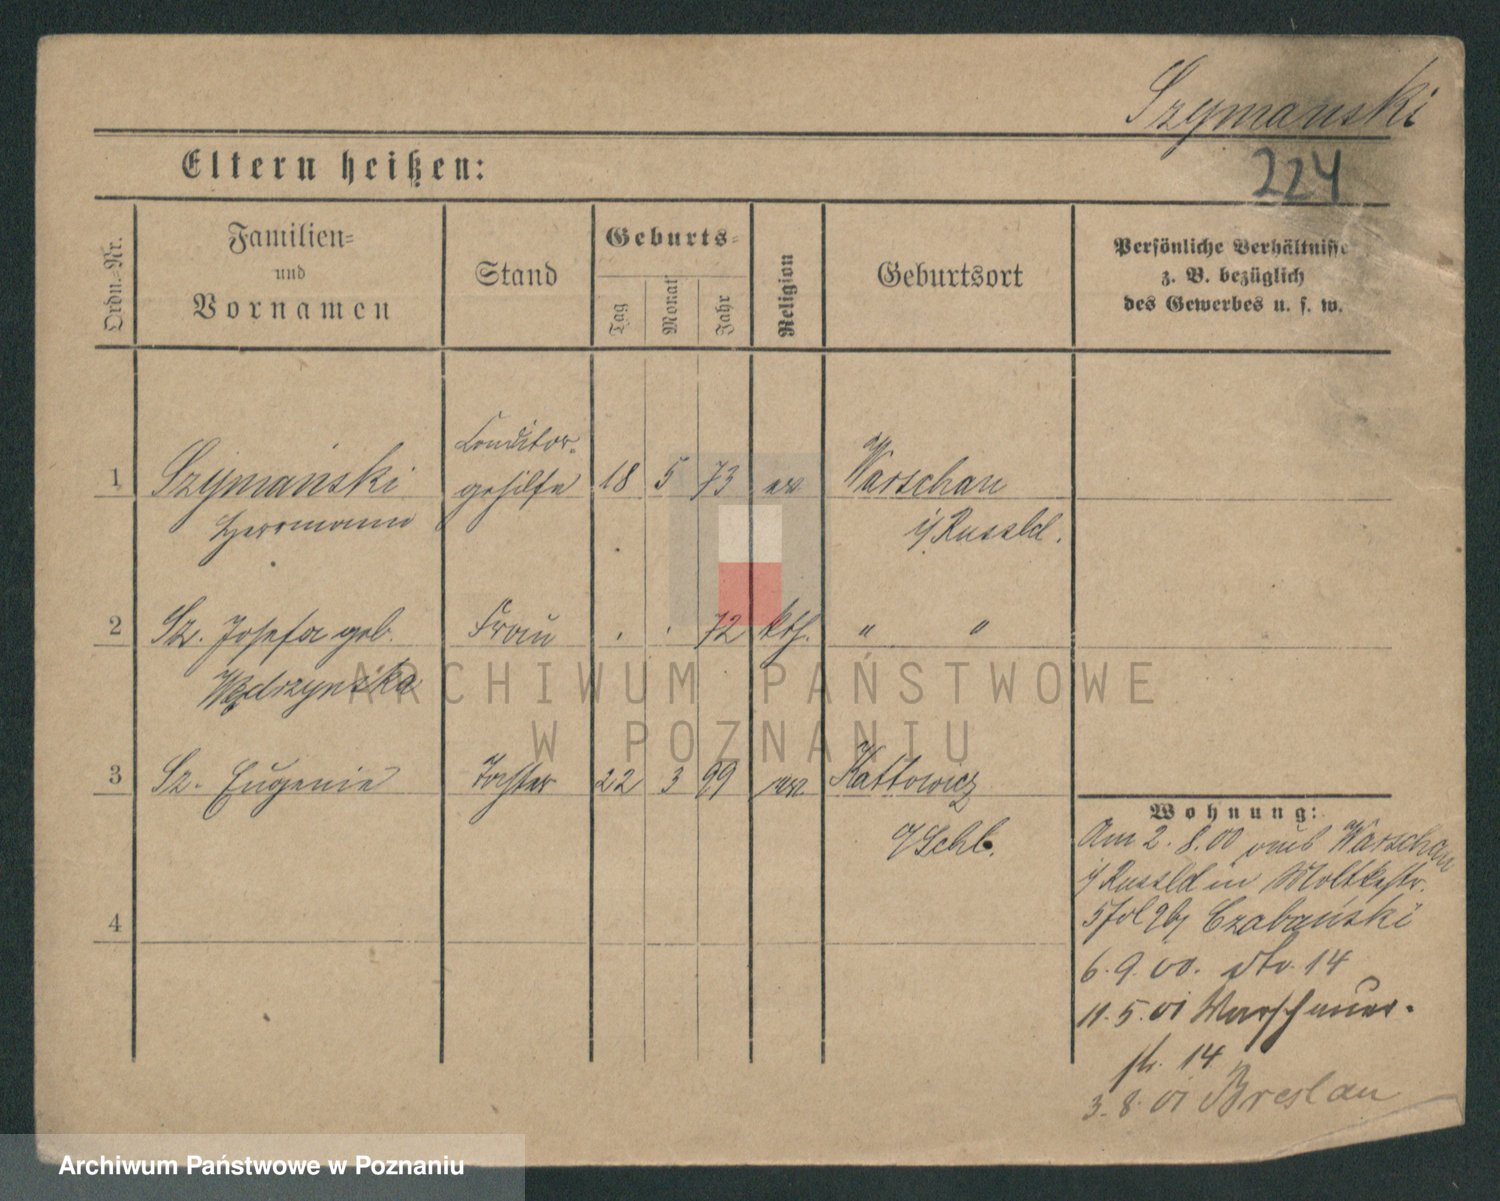 Szymanski
224
Eltern heißen:
Ordn.-Nr.
Familien-
und
Vornamen
Stand
Geburts-
Tag
Monat
Jahr
Religion
Geburtsort
Persönliche Verhältnisse
z. B. bezüglich
des Gewerbes u. s. w.
1 Szymański Conditor-
gehilfe 18 5 73 ev. Warschau
Herrmann i/ Russld.
2 Sz. Josefa geb. Frau . . 72 kth. " "
Wędrzynska
3 Sz. Eugenie Tochter 22 3 99 ev. Kattowicz
Schl.
4
Wohnung:
Am 2. 8. 00 aus Warschau
i/ Russld in Moltkestr.
5 Czabański
6. 9. 00. dto. 14
11. 5. 01 Warschauer-
str. 14
3. 8. 01 Breslau
ARCHIWUM PAŃSTWOWE
W POZNANIU
Archiwum Państwowe w Poznaniu